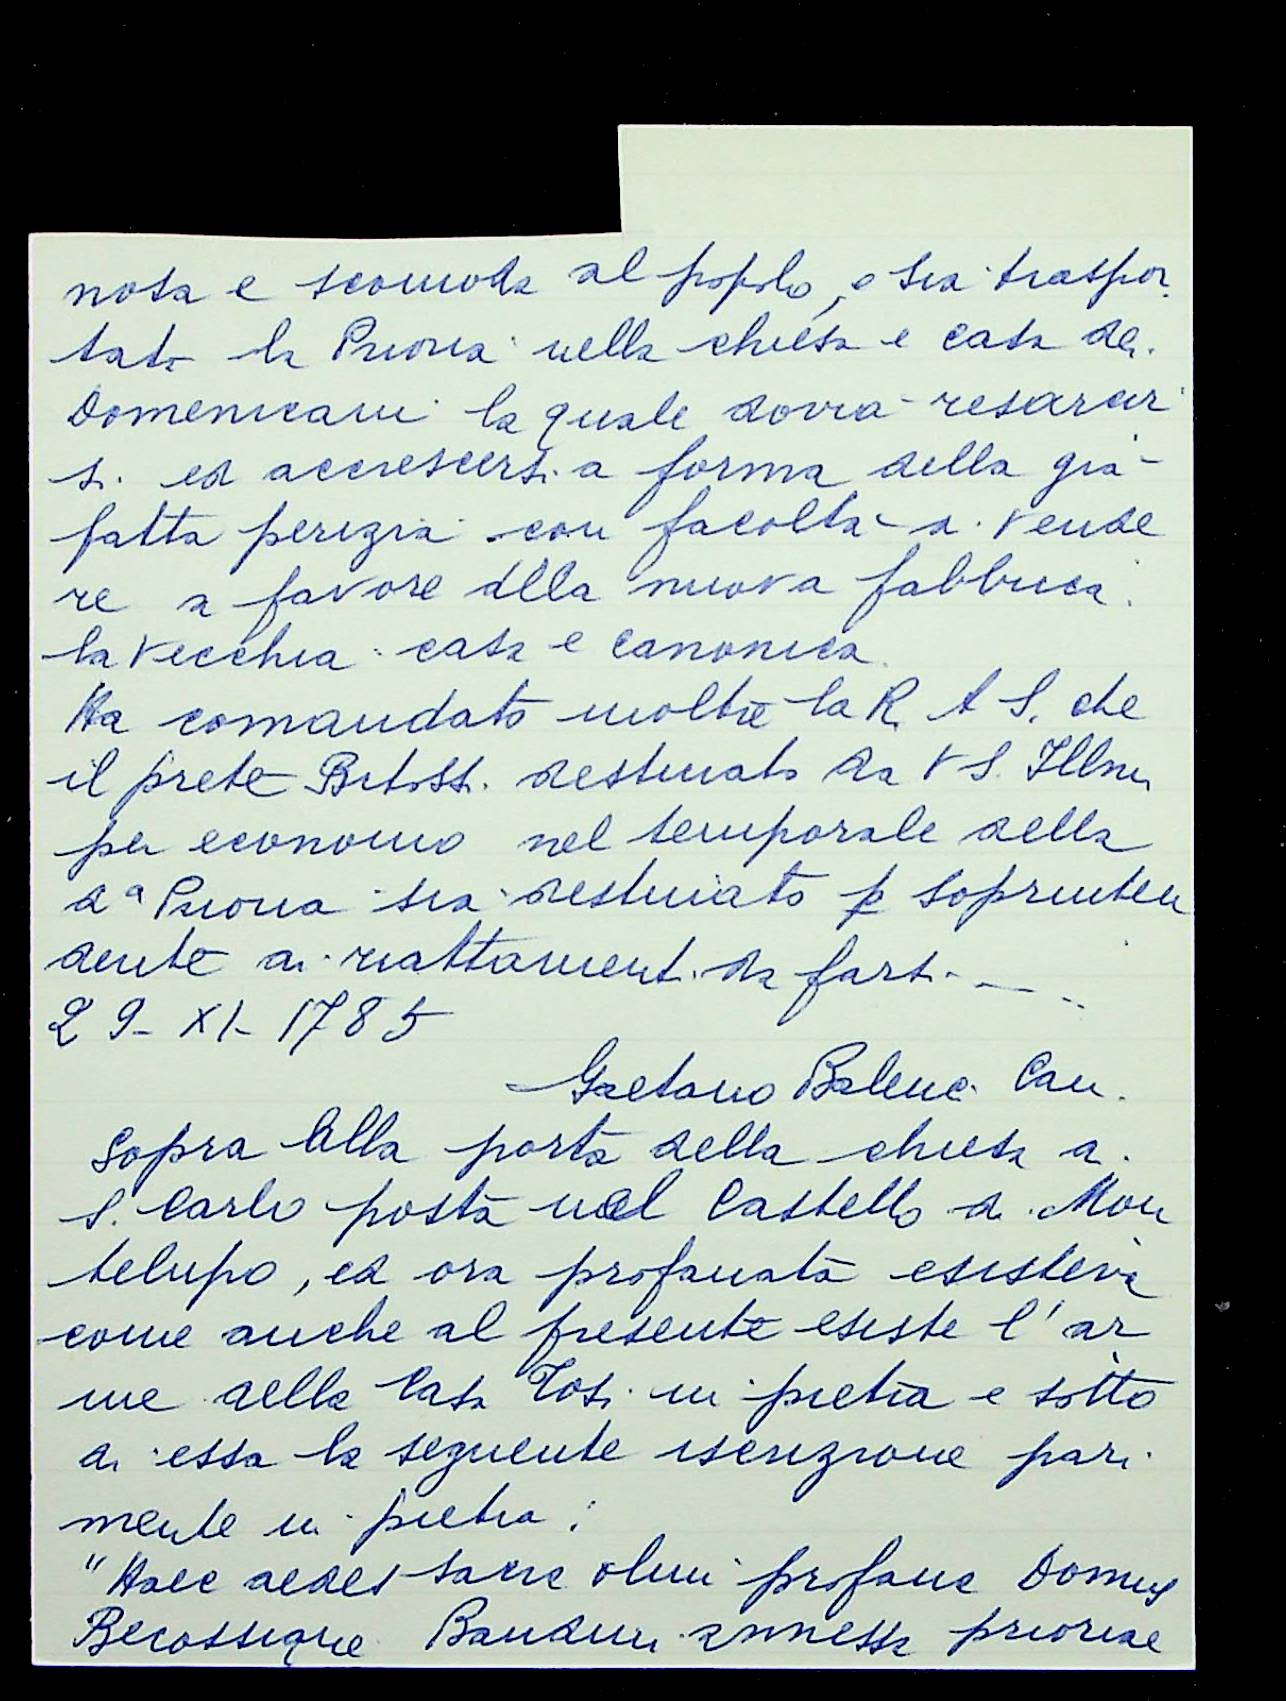 nosa e scomoda al popolo, e sia traspor
tata la Prioria nella chiesa e casa dei
Domenicani la quale dovrà resarcir
si ed accrescersi a forma della già
fatta perizia con facoltà di vende
re a favore dlla nuova fabbrica
la vecchia casa e canonica
Ha comandato inoltre la R. A S. che
il prete Bitossi destinato da V S. Illma
per economo nel temporale della
da Prioria sia destinato p soprinten
dente ai riattamenti da farsi
29- XI- 1785
Gaetano Can.
Sopra alla porta della chiesa di
S. Carlo posta nel Castello di Mon
telupo, ed ora profanata esisteva
come anche al presente esiste l'ar
me della Casa Tosi in pietra e sotto
di essa la seguente iscrizione pari
mente in pietra:
"Haec aedes sacre olim profane Domus
Bandini annessa prioriae